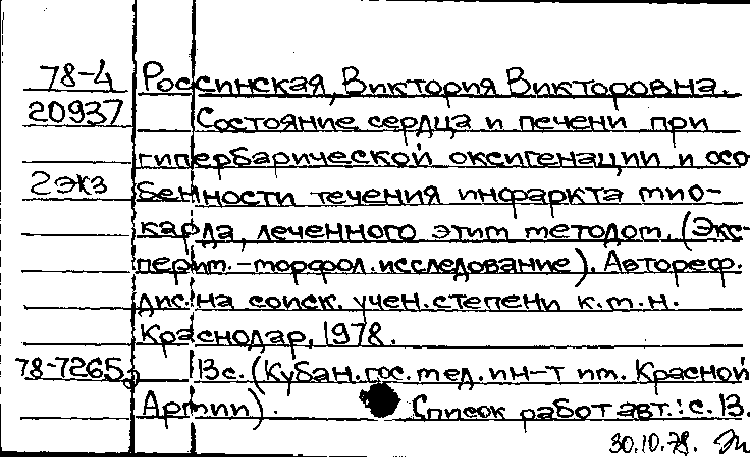 78-4 Россинская, Виктория Викторовна.
20937 Состояние сердца и печени при
гипербарической оксигенации и осо
2экз бенности течения инфаркта мио-
карда, леченного этим методом. (Экс-
перим.-морфол. исследование). Автореф.
дис. на соиск. учен. степени к.м.н.
Краснодар, 1978.
78-7265 13с. (Кубан. гос. мед. ин-т им. Красной
Армии). Список работ авт.: с. 13.
30.10.78.